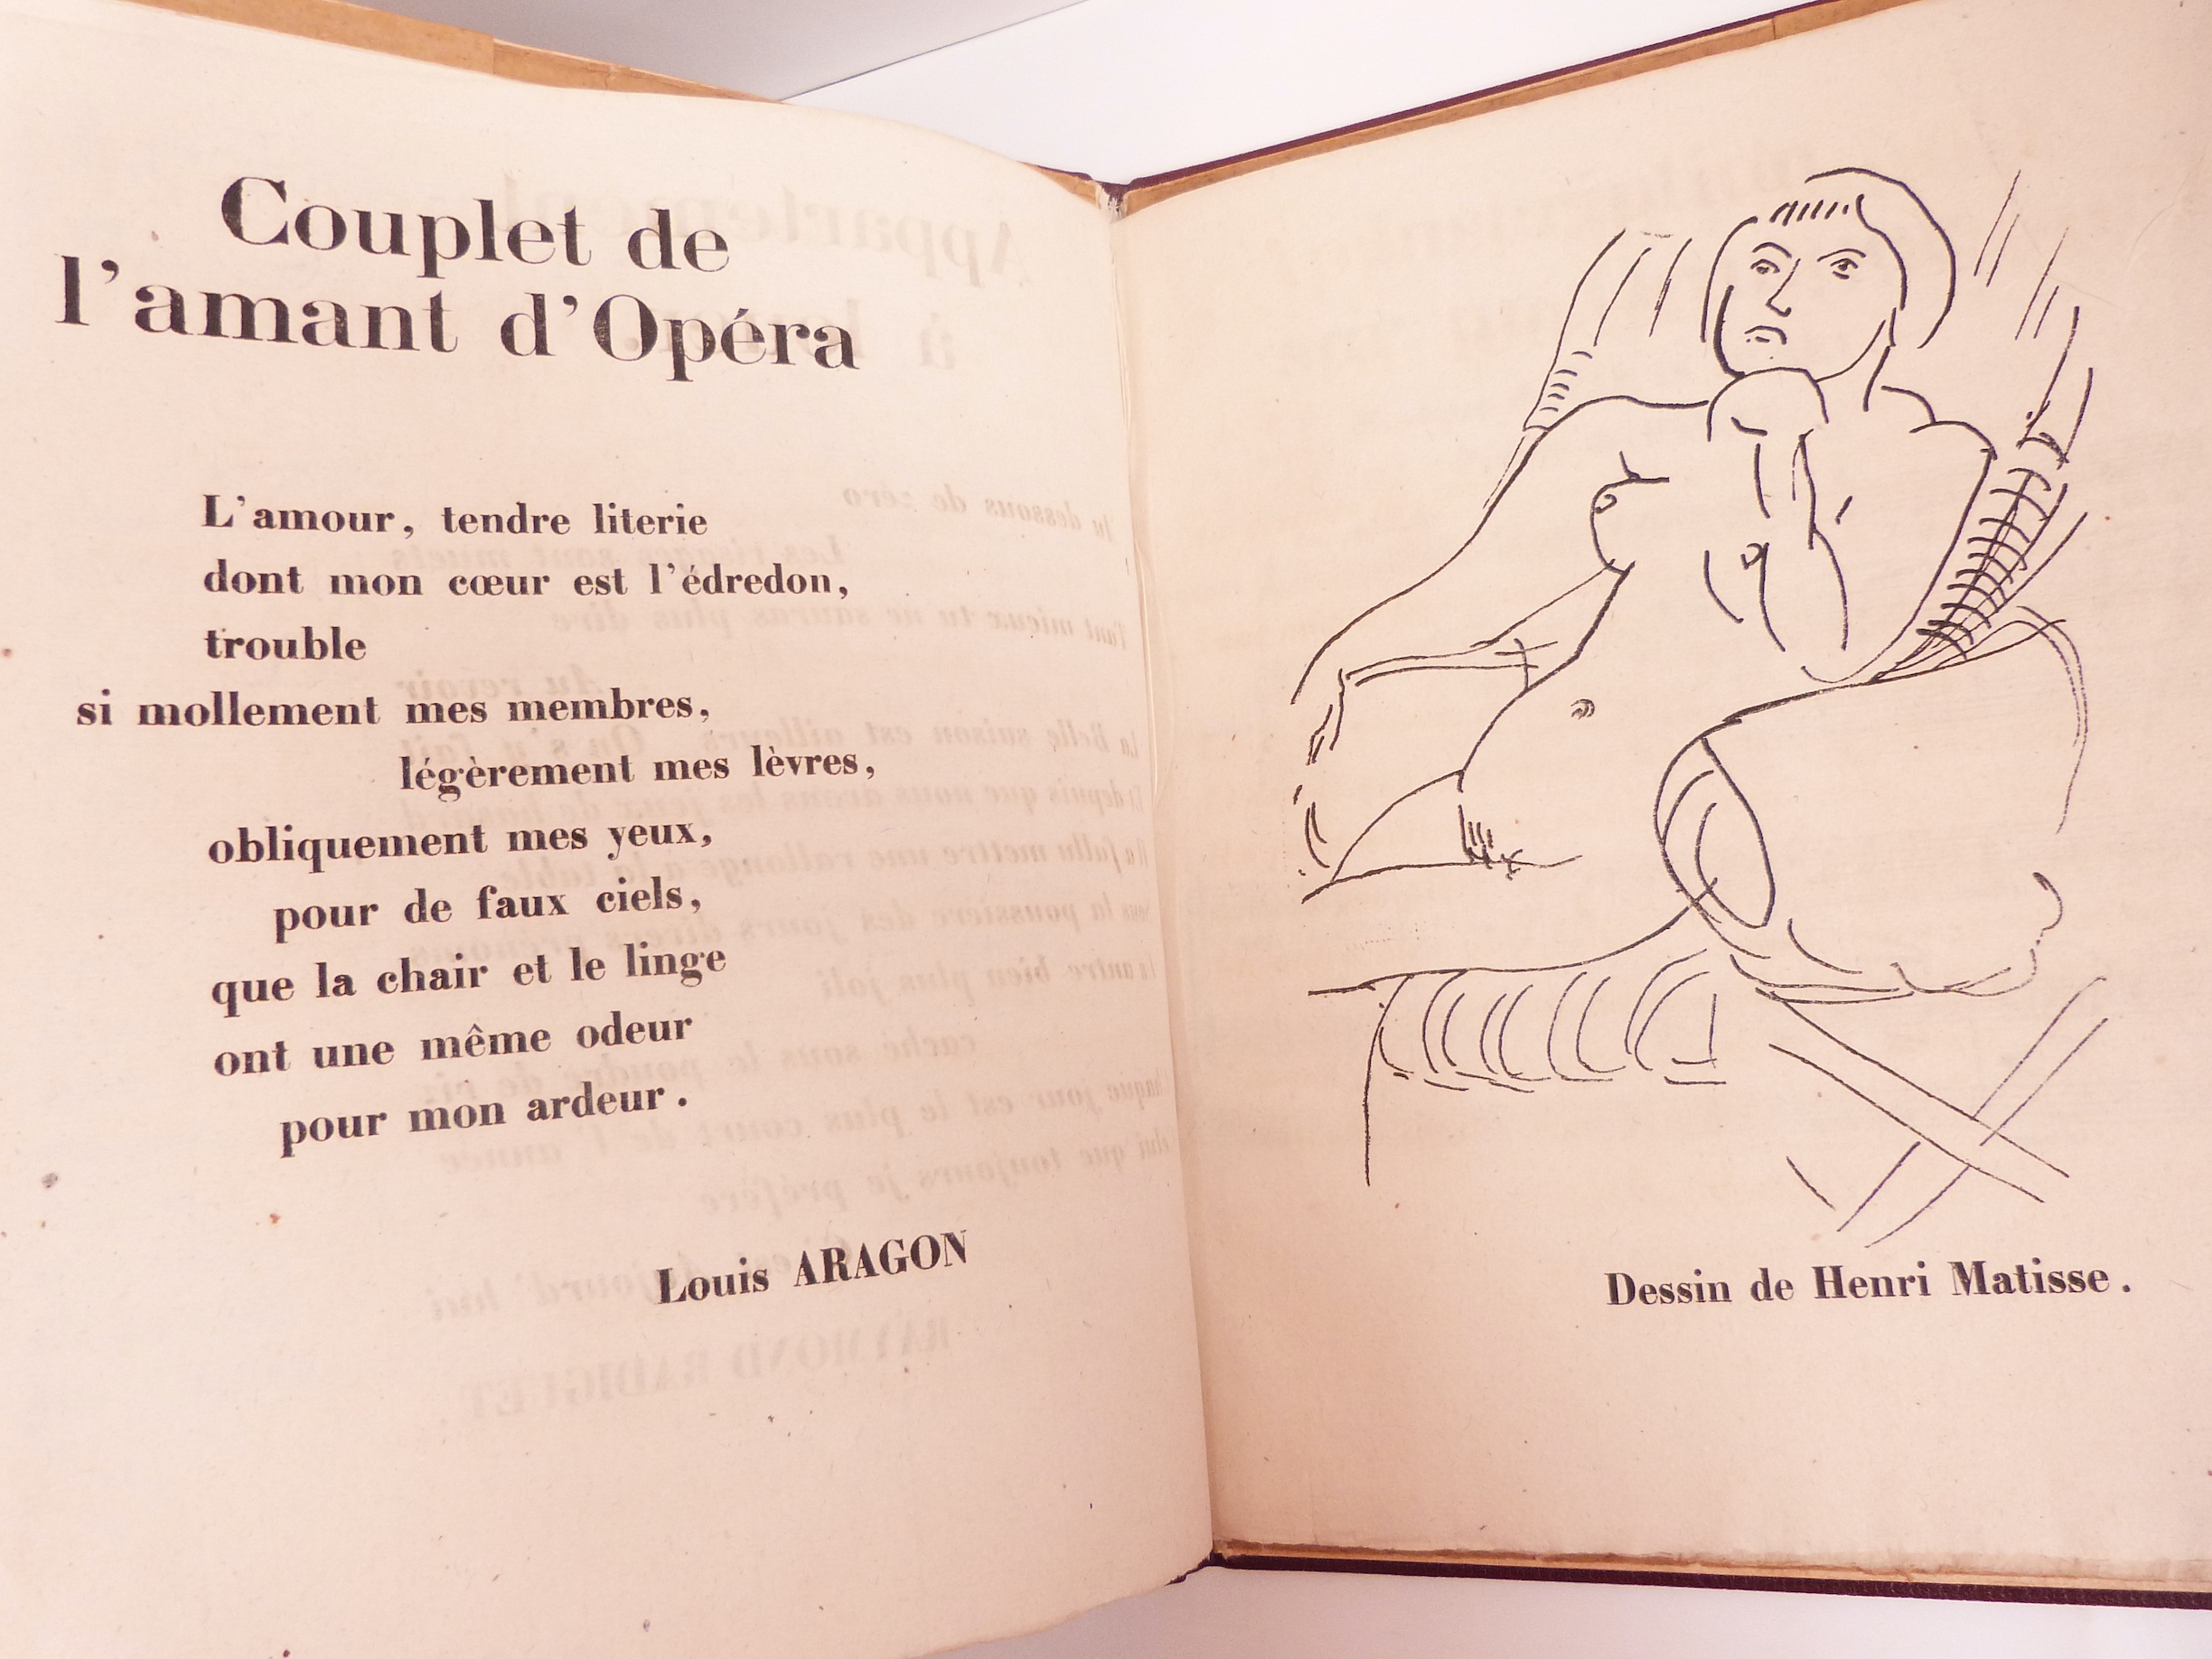 Couplet de
l'amant d'Opéra
L'amour, tendre literie
dont mon cœur est l'édredon,
trouble
si mollement mes membres,
légèrement mes lèvres,
obliquement mes yeux,
pour de faux ciels,
que la chair et le linge
ont une même odeur
pour mon ardeur.
Louis ARAGON
Dessin de Henri Matisse.